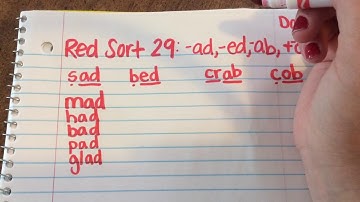 Da
Red Sort 29: -ad, -ed, -ab,
sad bed crab cob
mad
had
bad
pad
glad